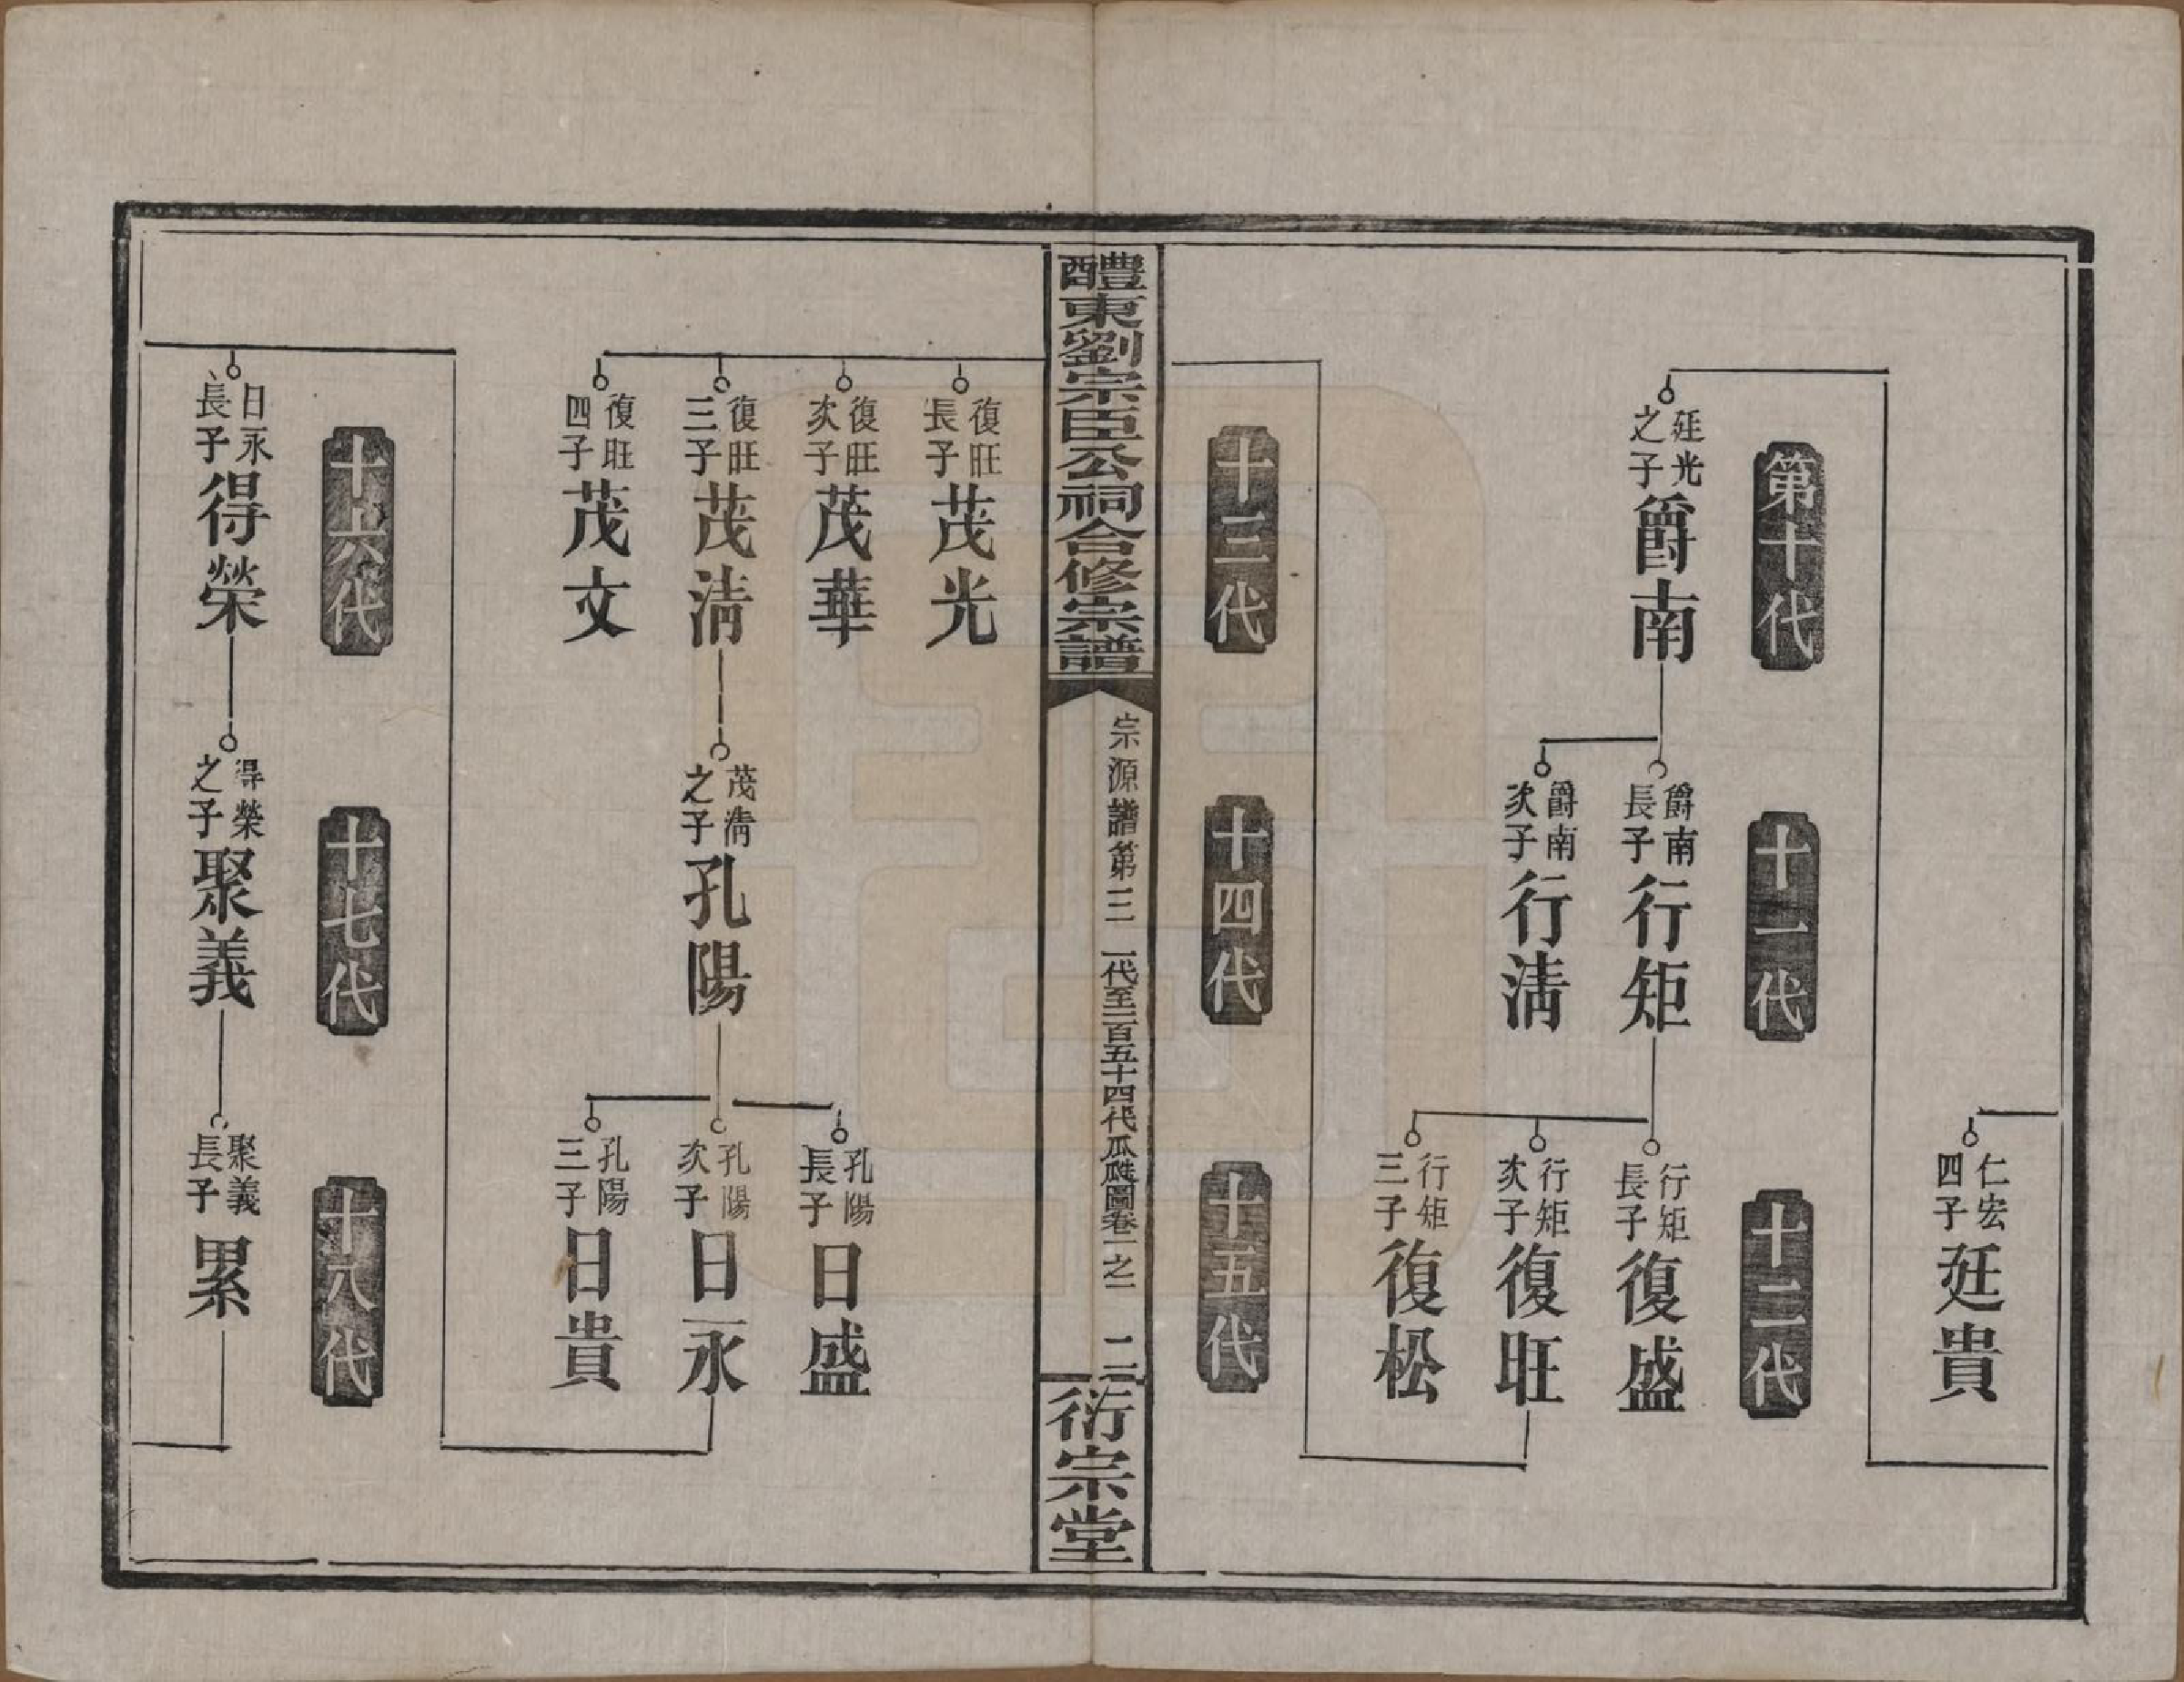 仁宏四子廷貴
第十代
十一代
十二代
廷光之子爵南
爵南長子行矩
爵南次子行淸
行矩長子復盛
行矩次子復旺
行矩三子復松
十三代
十四代
十五代
醴東劉宗臣公祠合修宗譜
宗源譜第三
一代至一百五十四代瓜瓞圖卷一之二
二
衍宗堂
復旺長子茂光
復旺次子茂華
復旺三子茂淸
復旺四子茂文
茂淸之子孔陽
孔陽長子日盛
孔陽次子日永
孔陽三子日貴
十六代
十七代
十八代
日永長子得榮
得榮之子聚義
聚義長子累